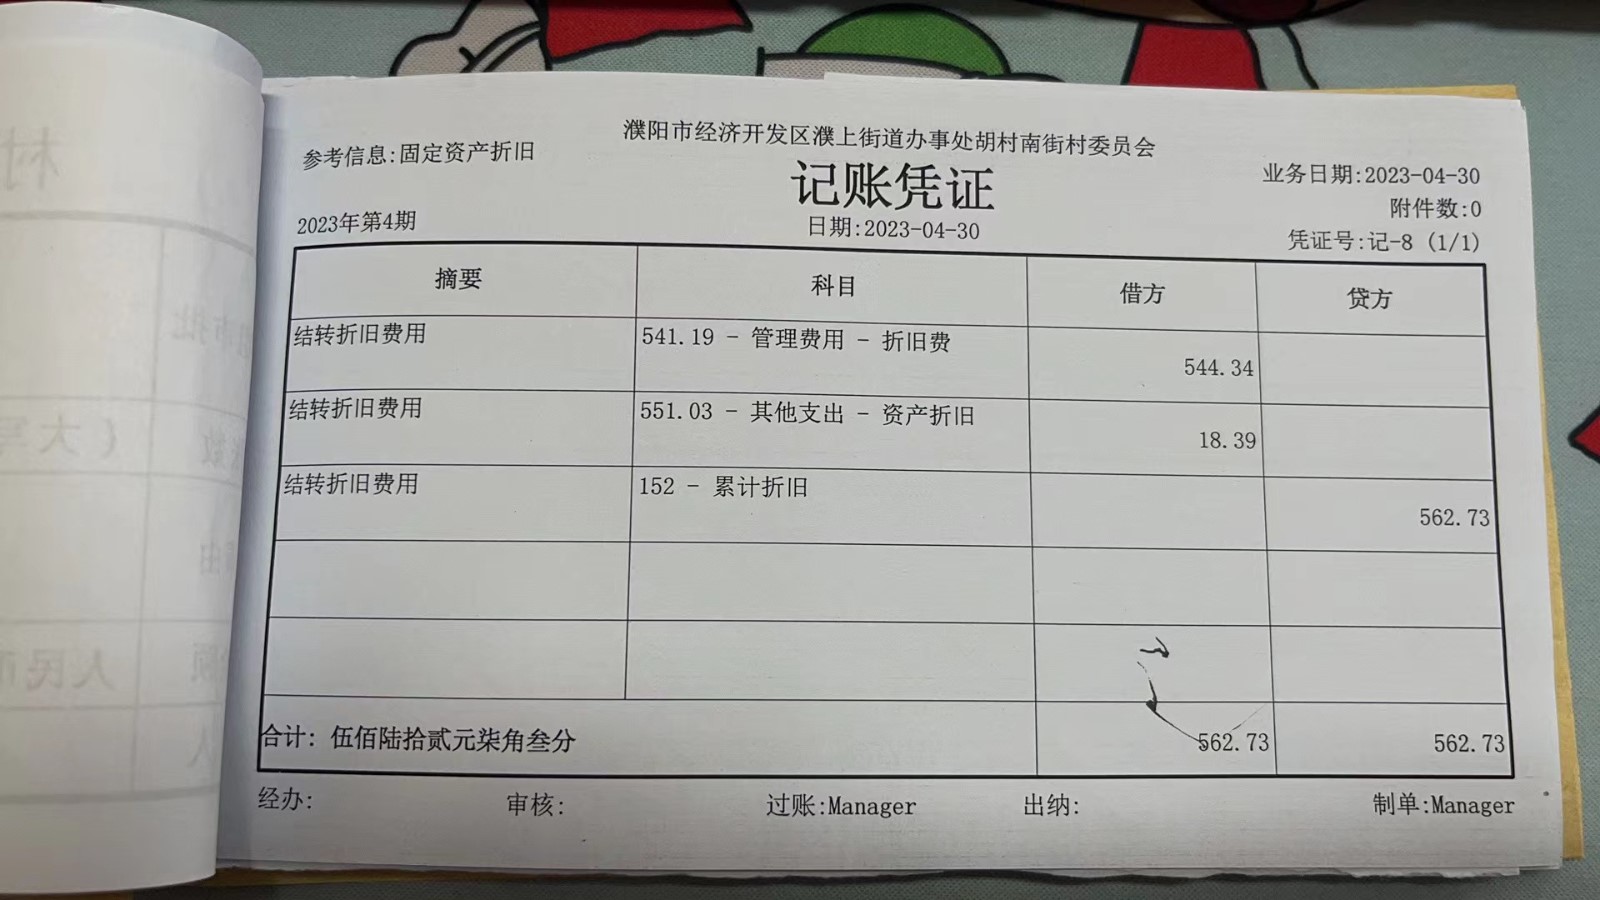 濮阳市经济开发区濮上街道办事处胡村南街村委员会
参考信息:固定资产折旧
记账凭证
业务日期:2023-04-30
附件数:0
2023年第4期
日期:2023-04-30
凭证号:记-8 (1/1)
摘要 科目 借方 贷方
结转折旧费用 541.19 - 管理费用 - 折旧费 544.34
结转折旧费用 551.03 - 其他支出 - 资产折旧 18.39
结转折旧费用 152 - 累计折旧 562.73
合计: 伍佰陆拾贰元柒角叁分 562.73 562.73
经办: 审核: 过账:Manager 出纳: 制单:Manager